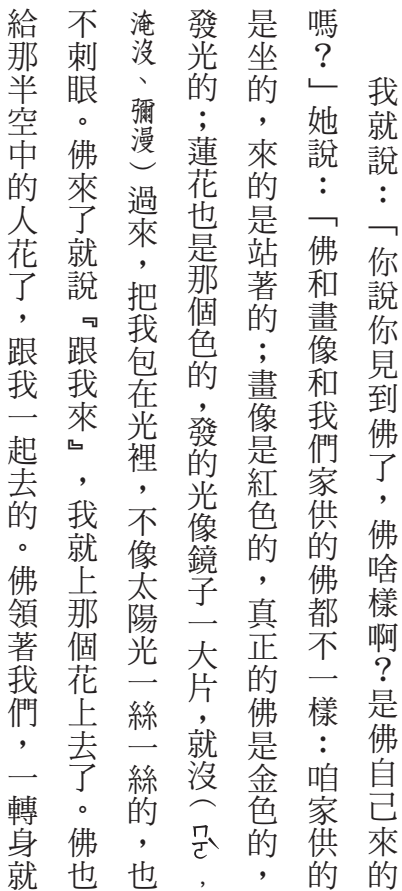 我就說：「你說你見到佛了，佛啥樣啊？是佛自己來的
嗎？」她說：「佛和畫像和我們家供的佛都不一樣：咱家供的
是坐的，來的是站著的；畫像是紅色的，真正的佛是金色的，
發光的；蓮花也是那個色的，發的光像鏡子一大片，就沒（ㄇㄛˋ，
淹沒、彌漫）過來，把我包在光裡，不像太陽光一絲一絲的，也
不刺眼。佛來了就說『跟我來』，我就上那個花上去了。佛也
給那半空中的人花了，跟我一起去的。佛領著我們，一轉身就